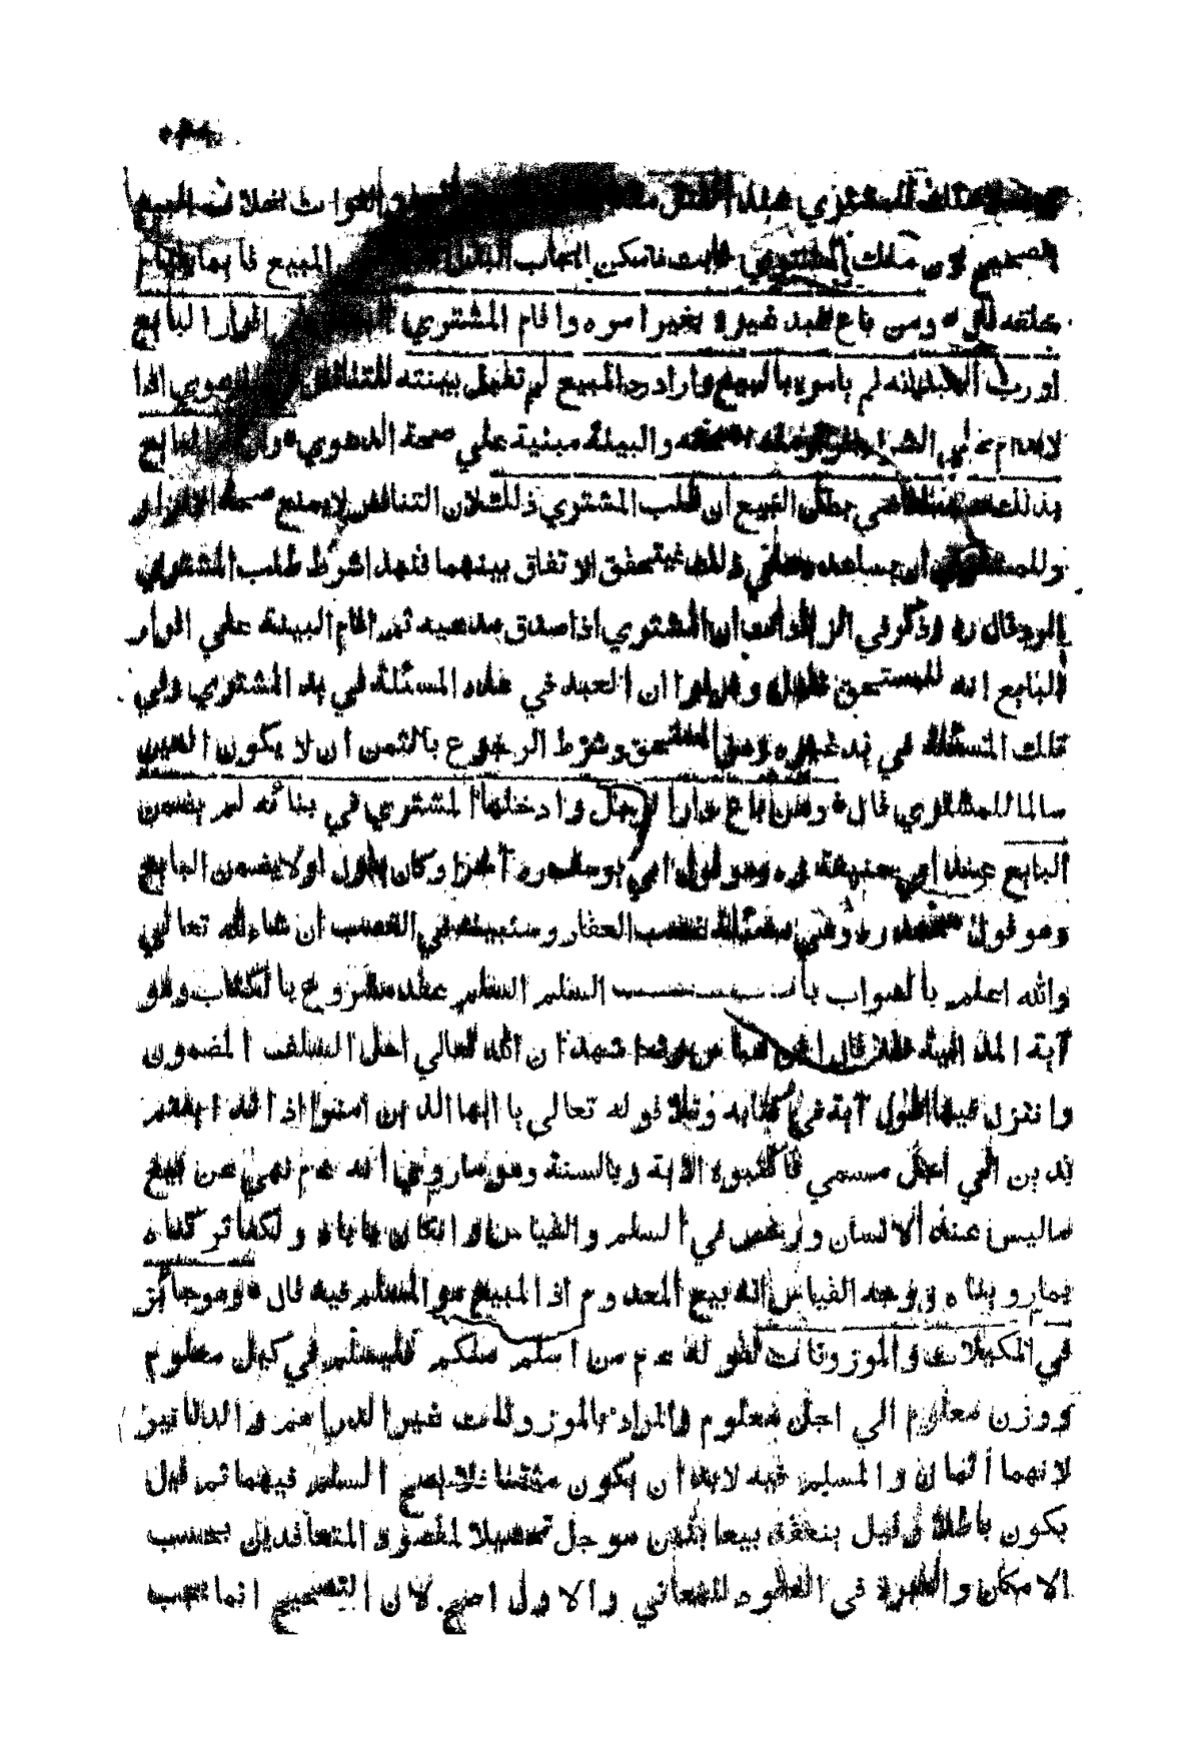 للمشتري عبد القتل الفوات بخلاف البيع
الصحيح لان ملك المشتري ثابت فامكن ايجاب البدل المبيع قايما مقام
خلفه قال ومن باع عبد غيره بغير امره واقام المشتري اقرار البايع
او رب العبد انه لم يامره بالبيع واراد رد المبيع لم تقبل بينته للتناقض الدعوي اذا
لاقدام علي الشراء صحته والبينة مبنية علي صحة الدعوي وان البايع
بذلك عند القاضي بطل البيع ان طلب المشتري ذلك لان التناقض لا يمنع صحة الاقرار
وللمشتري ان يساعده علي ذلك فيتحقق الاتفاق بينهما فلهذا شرط طلب المشتري
قال ره وذكر في الزيادات ان المشتري اذا صدق مدعيه ثم اقام البينة علي اقرار
البايع انه للمستحق تقبل وفرقوا ان العبد في هذه المسئلة في يد المشتري وفي
تلك المسئلة في يد غيره وهو المستحق وشرط الرجوع بالثمن ان لا يكون العين
سالما للمشتري قال ومن باع دارا لرجل وادخلها المشتري في بنائه لم يضمن
البايع عند ابي حنيفة ره وهو قول ابي يوسف ره آخرا وكان يقول اولا يضمن البايع
وهو قول محمد ره وهي مسئلة غصب العقار وسنبينه في الغصب ان شاء الله تعالي
والله اعلم بالصواب باب السلم السلم عقد مشروع بالكتاب وهو
آية المداينة فقد قال ابن عباس رض اشهد ان الله تعالي احل السلف المضمون
وانزل فيها اطول آية في كتابه وتلا قوله تعالي يا ايها الذين امنوا اذا تداينتم
بدين الي اجل مسمي فاكتبوه الاية وبالسنة وهو ما روي انه عم نهي عن بيع
ما ليس عند الانسان ورخص في السلم والقياس وان كان ياباه ولكنا تركناه
بما رويناه ووجه القياس انه بيع المعدوم اذ المبيع هو المسلم فيه قال وهو جايز
في المكيلات والموزونات لقوله عم من اسلم منكم فليسلم في كيل معلوم
ووزن معلوم الي اجل معلوم والمراد بالموزونات غير الدراهم والدنانير
لانهما اثمان والمسلم فيه لابد ان يكون مثمنا فلا يصح السلم فيهما ثم قيل
يكون باطلا وقيل ينعقد بيعا بثمن موجل تحصيلا لمقصود المتعاقدين بحسب
الامكان والعبرة في العقود للمعاني والاول اصح لان التصحيح انما يجب